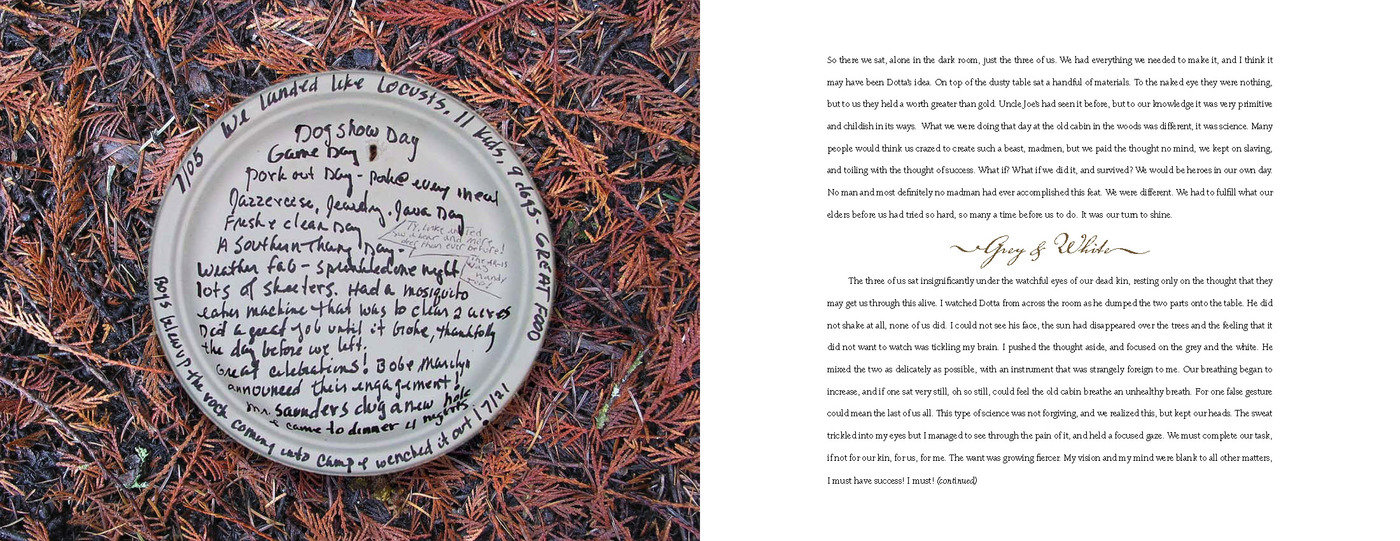 7/03 We landed like Locusts, 11 kids, 9 dogs - GREAT FOOD
Dogshow Day
Game Day
Pork out Day - pork @ every meal
Jazzercise, Jewelry, Java Day
Fresh & clean Day
A Southern Thang Day -
Ty, Luke and Ted
saw a bear and more
deer than ever before!
The AR-15
was
handy
Weather fab - sprinkled one night
lots of skeeters. Had a mosquito
eater machine that was to clear 2 acres
Did a great job until it broke, thankfully
the day before we left.
Great celebrations! Bob & Marilyn
announced their engagement!
Mr. Saunders dug a new hole
& came to dinner 4 nights
Boys blew up the rock coming into Camp & wenched it out! 7/21
So there we sat, alone in the dark room, just the three of us. We had everything we needed to make it, and I think it
may have been Dotta's idea. On top of the dusty table sat a handful of materials. To the naked eye they were nothing,
but to us they held a worth greater than gold. Uncle Joe's had seen it before, but to our knowledge it was very primitive
and childish in its ways. What we were doing that day at the old cabin in the woods was different, it was science. Many
people would think us crazed to create such a beast, madmen, but we paid the thought no mind, we kept on slaving,
and toiling with the thought of success. What if? What if we did it, and survived? We would be heroes in our own day.
No man and most definitely no madman had ever accomplished this feat. We were different. We had to fulfill what our
elders before us had tried so hard, so many a time before us to do. It was our turn to shine.
Grey & White
The three of us sat insignificantly under the watchful eyes of our dead kin, resting only on the thought that they
may get us through this alive. I watched Dotta from across the room as he dumped the two parts onto the table. He did
not shake at all, none of us did. I could not see his face, the sun had disappeared over the trees and the feeling that it
did not want to watch was tickling my brain. I pushed the thought aside, and focused on the grey and the white. He
mixed the two as delicately as possible, with an instrument that was strangely foreign to me. Our breathing began to
increase, and if one sat very still, oh so still, could feel the old cabin breathe an unhealthy breath. For one false gesture
could mean the last of us all. This type of science was not forgiving, and we realized this, but kept our heads. The sweat
trickled into my eyes but I managed to see through the pain of it, and held a focused gaze. We must complete our task,
if not for our kin, for us, for me. The want was growing fiercer. My vision and my mind were blank to all other matters,
I must have success! I must! (continued)